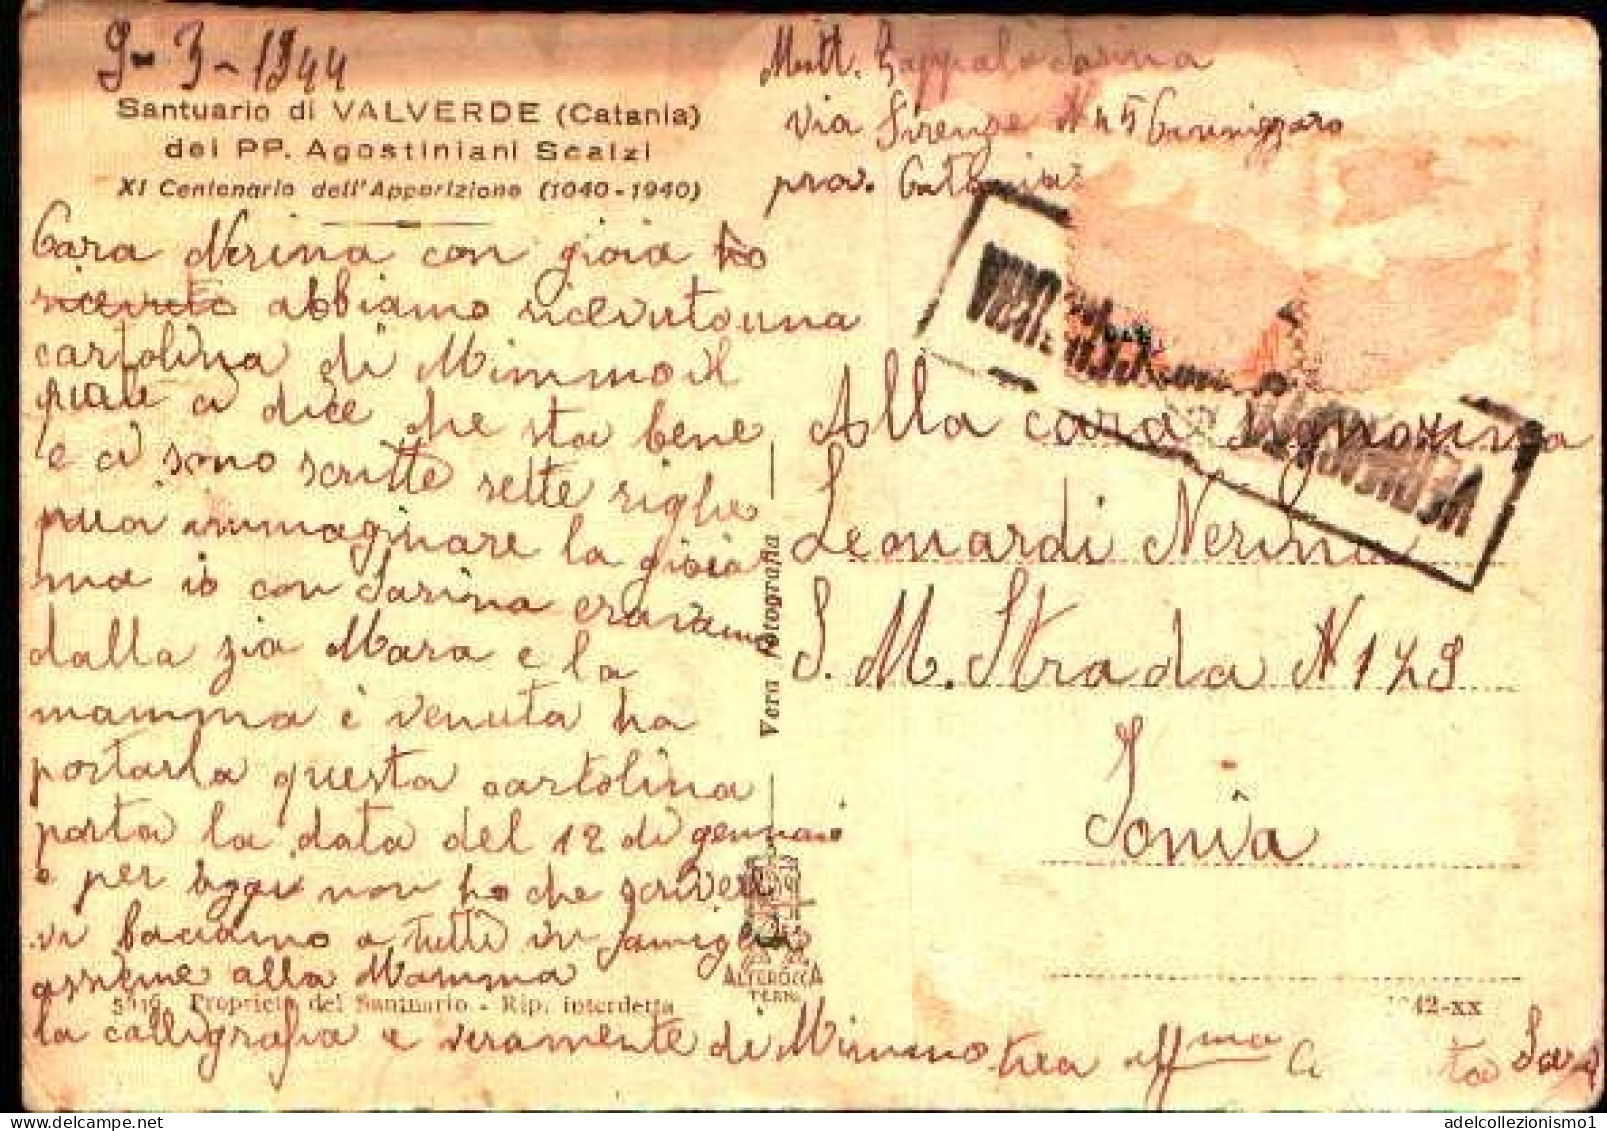 9-3-1944
Santuario di VALVERDE (Catania)
dei PP. Agostiniani Scalzi
XI Centenario dell'Apparizione (1040-1940)
Cara Nerina con gioia ho
ricevuto abbiamo ricevuto una
cartolina di Mimmo il
quale ci dice che sta bene
e ci sono scritte sette righe
puoi immaginare la gioia
ma io con Sarina eravamo
dalla zia Mara e la
mamma è venuta ha
portarla questa cartolina
porta la data del 12 di gennaio
e per oggi non ho che scriverti
vi baciamo a tutti in famiglia
assieme alla Mamma
5916. Proprietà del Santuario - Rip. interdetta
la calligrafia e veramente di Mimmo tua aff.ma Sara
Mitt. Zappalà Sarina
via Firenze N 45 Cannizzaro
prov. Catania
VERIFICATO PER CENSURA
Alla cara Signorina
Leonardi Nerina
S. M. Strada N 129
Sonia
Vera Fotografia
ALTEROCCA
TERNI
1942-XX
adelcollezionismo1